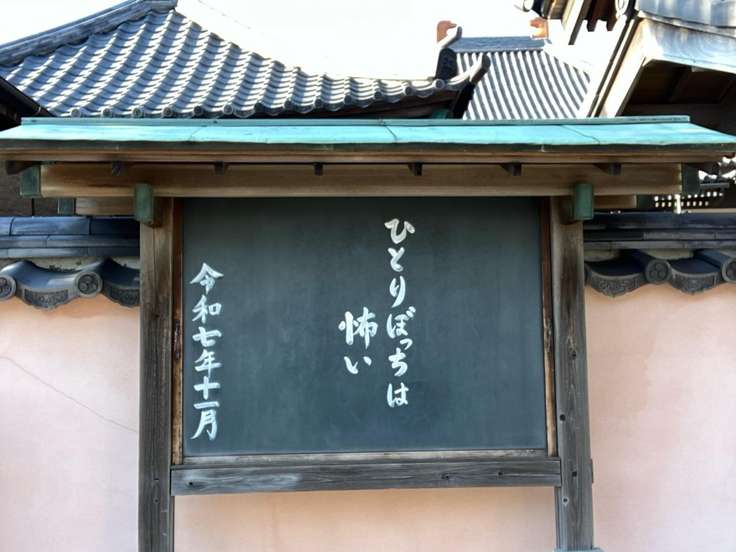 ひとりぼっちは
怖い
令和七年十一月